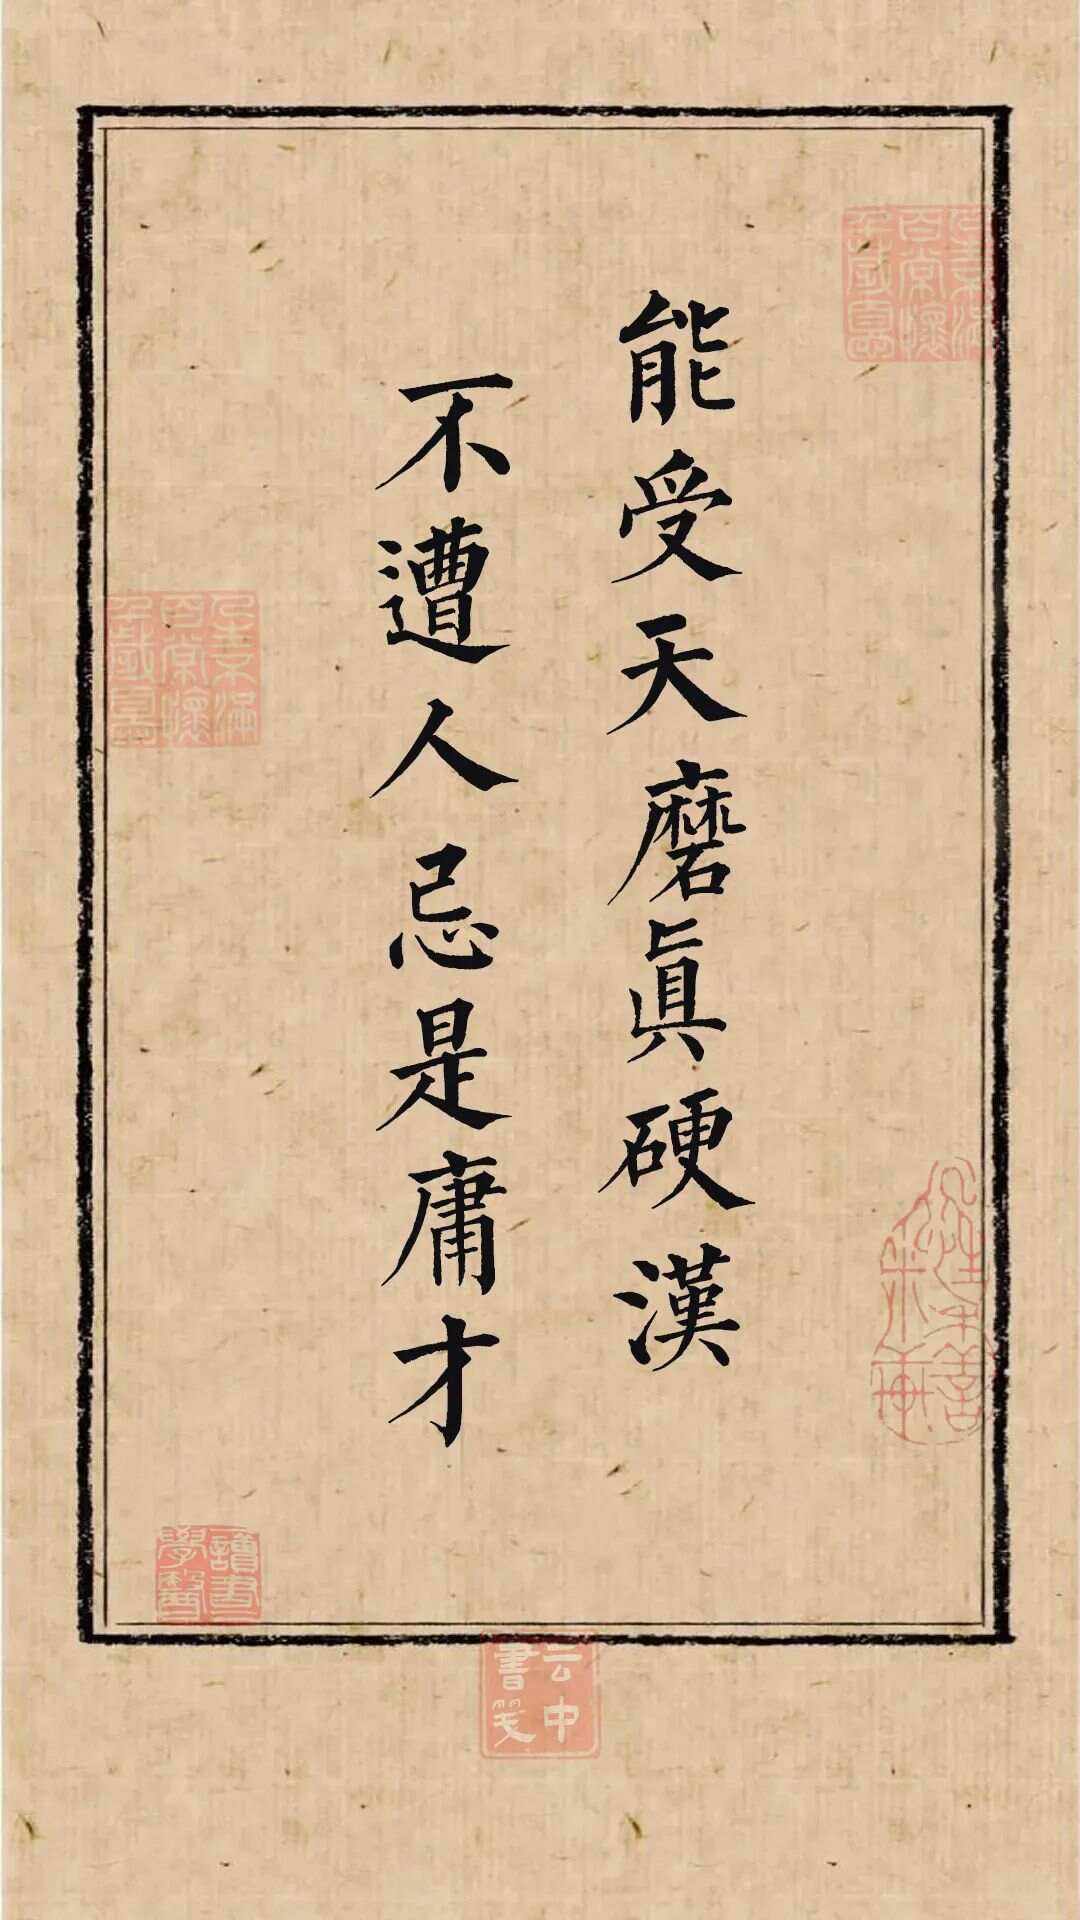 能受天磨眞硬漢
不遭人忌是庸才
讀書
學醫
云中
書笺